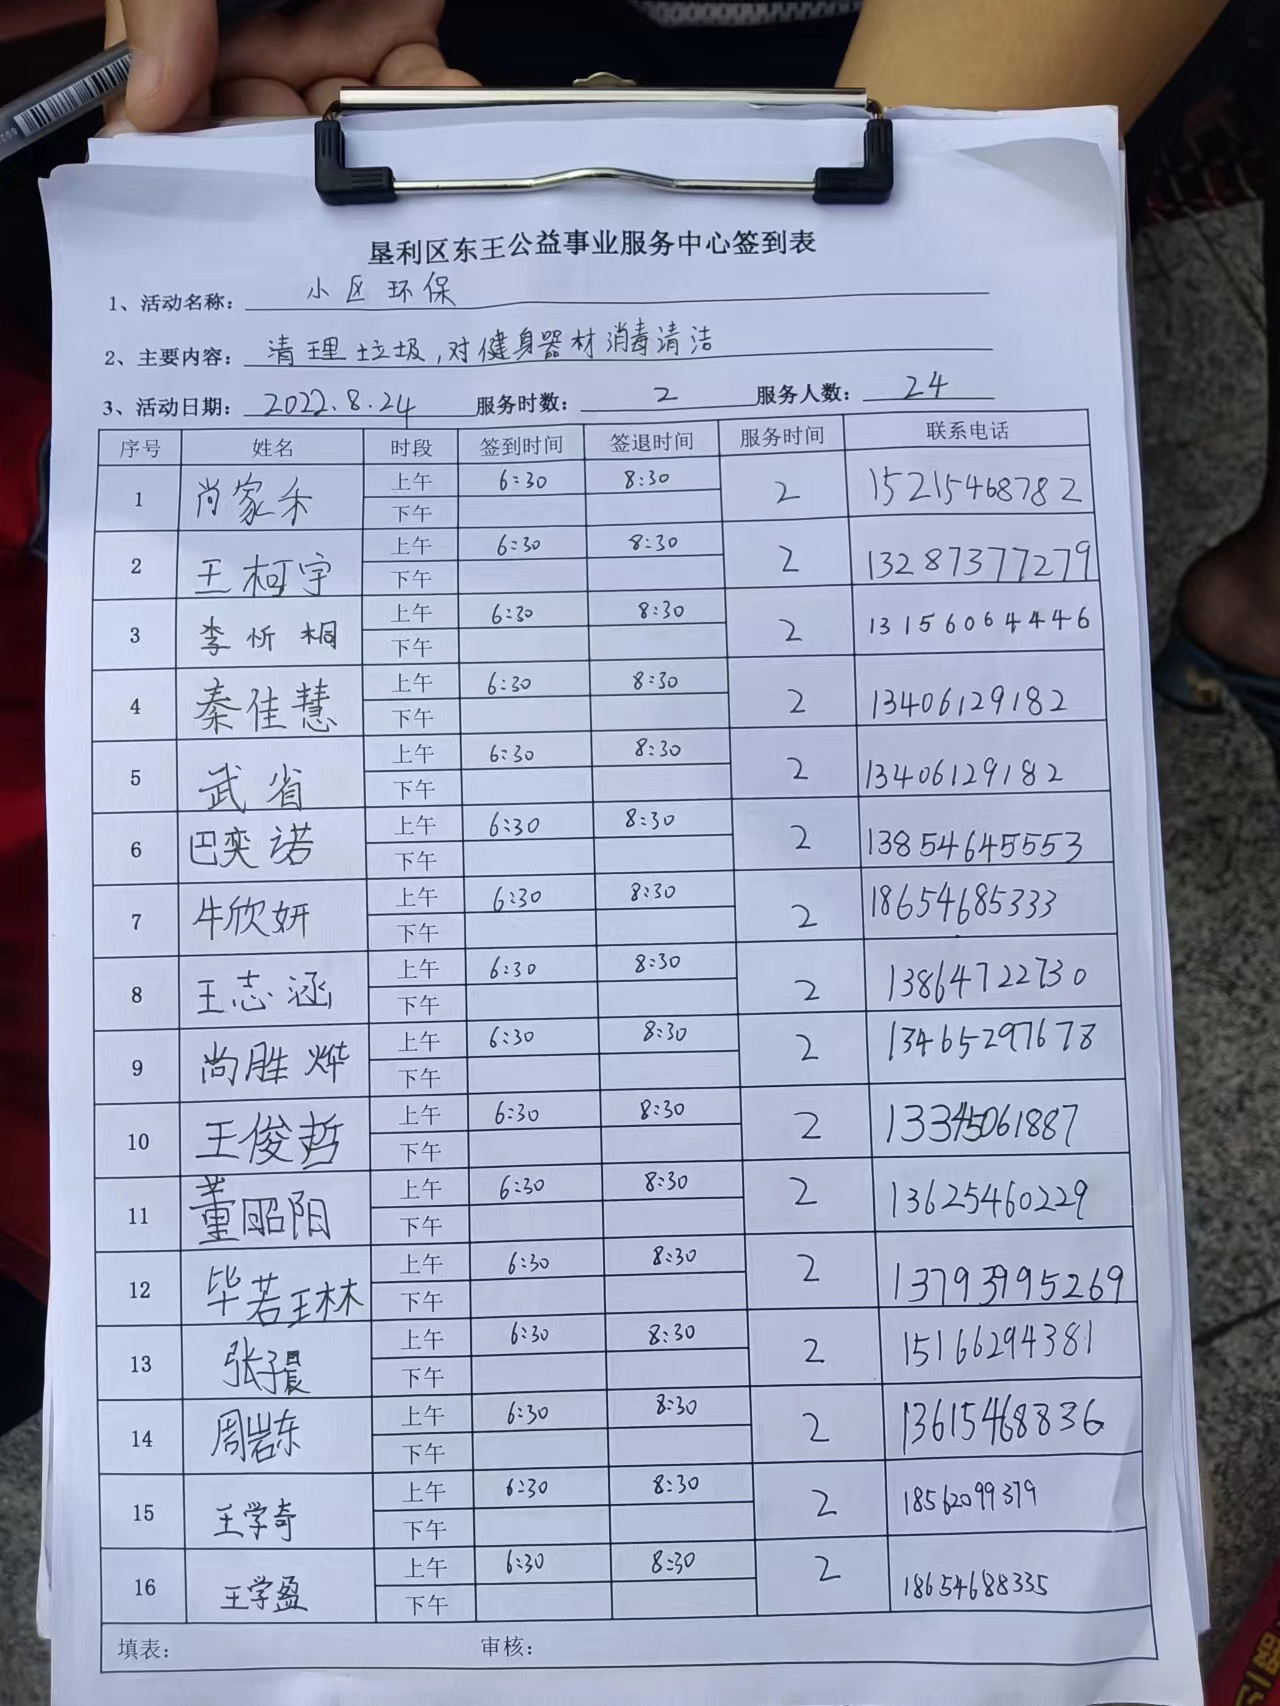 垦利区东王公益事业服务中心签到表
1、活动名称: 小区环保
2、主要内容: 清理垃圾,对健身器材消毒清洁
3、活动日期: 2022.8.24 服务时数: 2 服务人数: 24
序号 姓名 时段 签到时间 签退时间 服务时间 联系电话
1 尚家禾 上午 6:30 8:30 2 15215468782
下午
2 王柯宇 上午 6:30 8:30 2 13287377279
下午
3 李忻桐 上午 6:30 8:30 2 13156064446
下午
4 秦佳慧 上午 6:30 8:30 2 13406129182
下午
5 武省 上午 6:30 8:30 2 13406129182
下午
6 巴奕诺 上午 6:30 8:30 2 13854645553
下午
7 牛欣妍 上午 6:30 8:30 2 18654685333
下午
8 王志涵 上午 6:30 8:30 2 13864722730
下午
9 尚胜烨 上午 6:30 8:30 2 13465297678
下午
10 王俊哲 上午 6:30 8:30 2 13345061887
下午
11 董昭阳 上午 6:30 8:30 2 13625460229
下午
12 毕若琳 上午 6:30 8:30 2 13793995269
下午
13 张子晨 上午 6:30 8:30 2 15166294381
下午
14 周岩东 上午 6:30 8:30 2 13615468836
下午
15 王学奇 上午 6:30 8:30 2 18562099379
下午
16 王学盈 上午 6:30 8:30 2 18654688335
下午
填表: 审核: